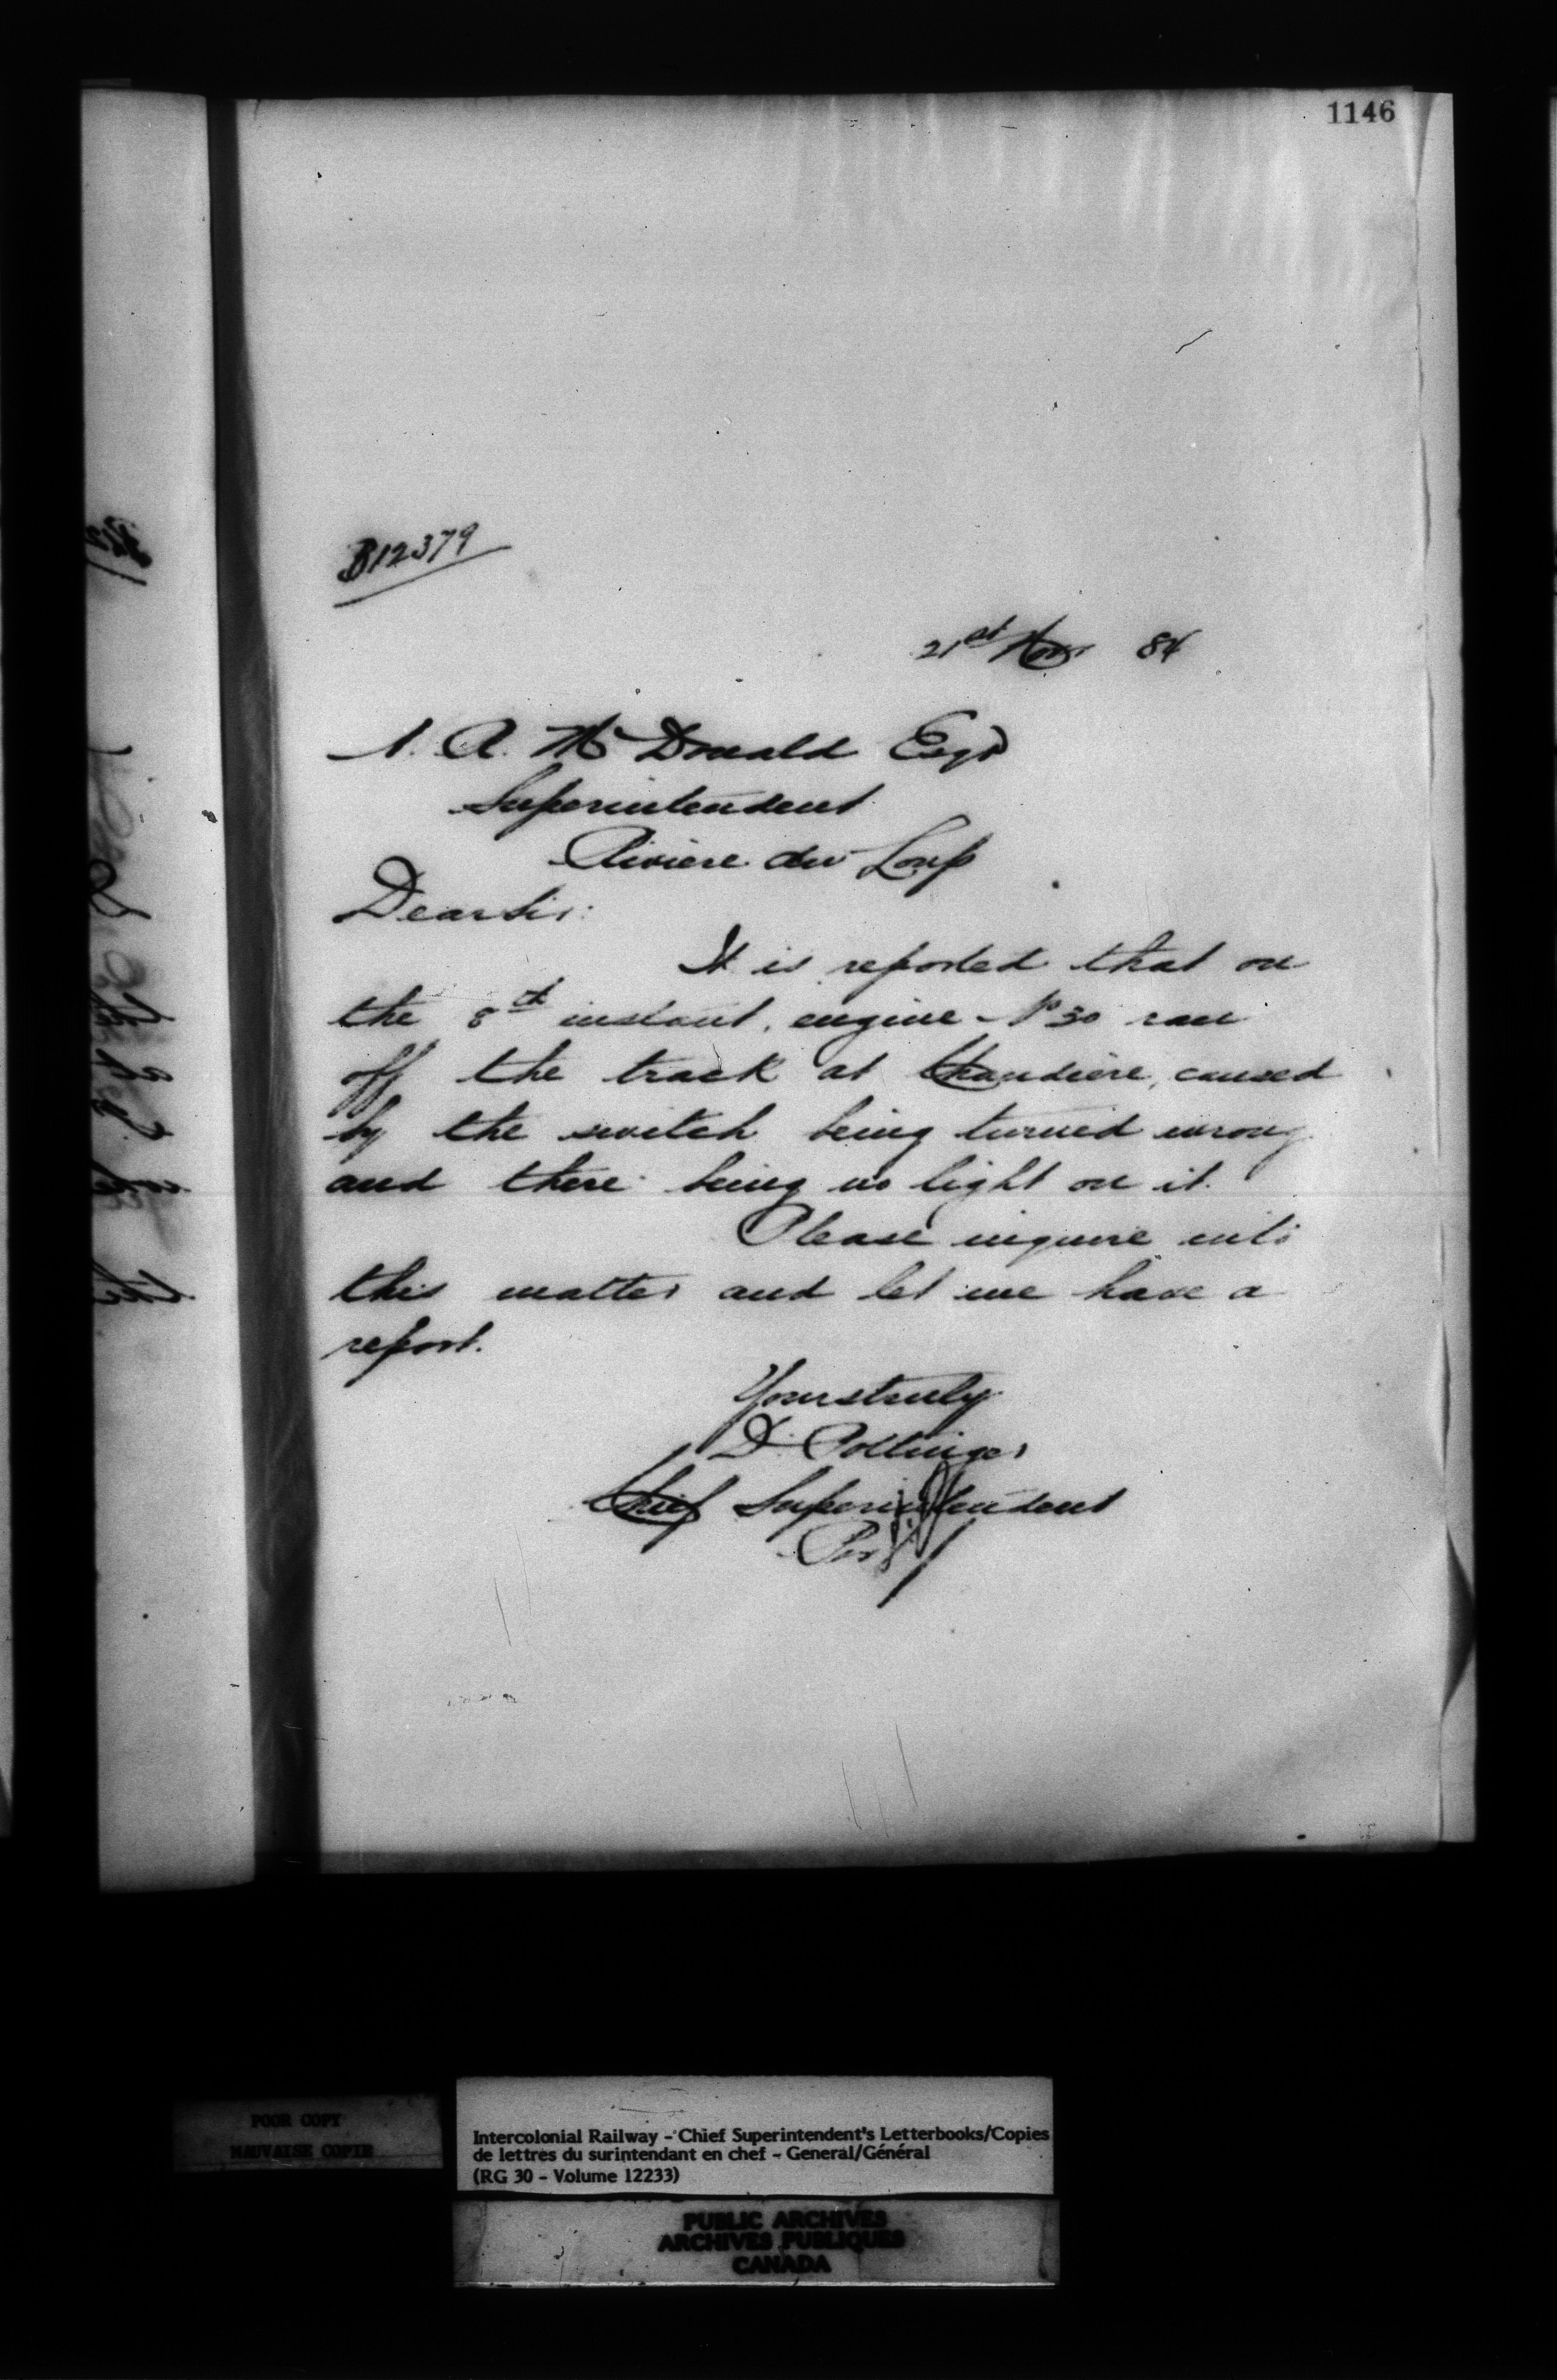 1146
B12379
21st Nov 84
A. R. McDonald Esqr
Superintendent
Riviere du Loup
Dear Sir:
It is reported that on
the 8th instant, engine No 30 ran
off the track at Chaudiere, caused
by the switch being turned wrong
and there being no light on it.
Please inquire into
this matter and let me have a
report.
Yours truly
D. Pottinger
Chief Superintendent
Per
POOR COPY
MAUVAISE COPIE
Intercolonial Railway - Chief Superintendent's Letterbooks/Copies
de lettres du surintendant en chef - General/Général
(RG 30 - Volume 12233)
PUBLIC ARCHIVES
ARCHIVES PUBLIQUES
CANADA